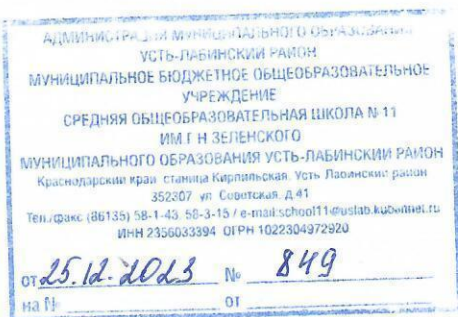 АДМИНИСТРАЦИИ МУНИЦИПАЛЬНОГО ОБРАЗОВАНИЯ
УСТЬ-ЛАБИНСКИЙ РАЙОН
МУНИЦИПАЛЬНОЕ БЮДЖЕТНОЕ ОБЩЕОБРАЗОВАТЕЛЬНОЕ
УЧРЕЖДЕНИЕ
СРЕДНЯЯ ОБЩЕОБРАЗОВАТЕЛЬНАЯ ШКОЛА № 11
ИМ.Г Н ЗЕЛЕНСКОГО
МУНИЦИПАЛЬНОГО ОБРАЗОВАНИЯ УСТЬ-ЛАБИНСКИЙ РАЙОН
Краснодарский край станица Кирпильская, Усть Лабинский район
352307 ул Советская, д.41
Тел./факс (86135) 58-1-43, 58-3-15 / e-mail:school11@uslab.kubannet.ru
ИНН 2356033394 ОГРН 1022304972920
от 25.12.2023 № 849
на № от